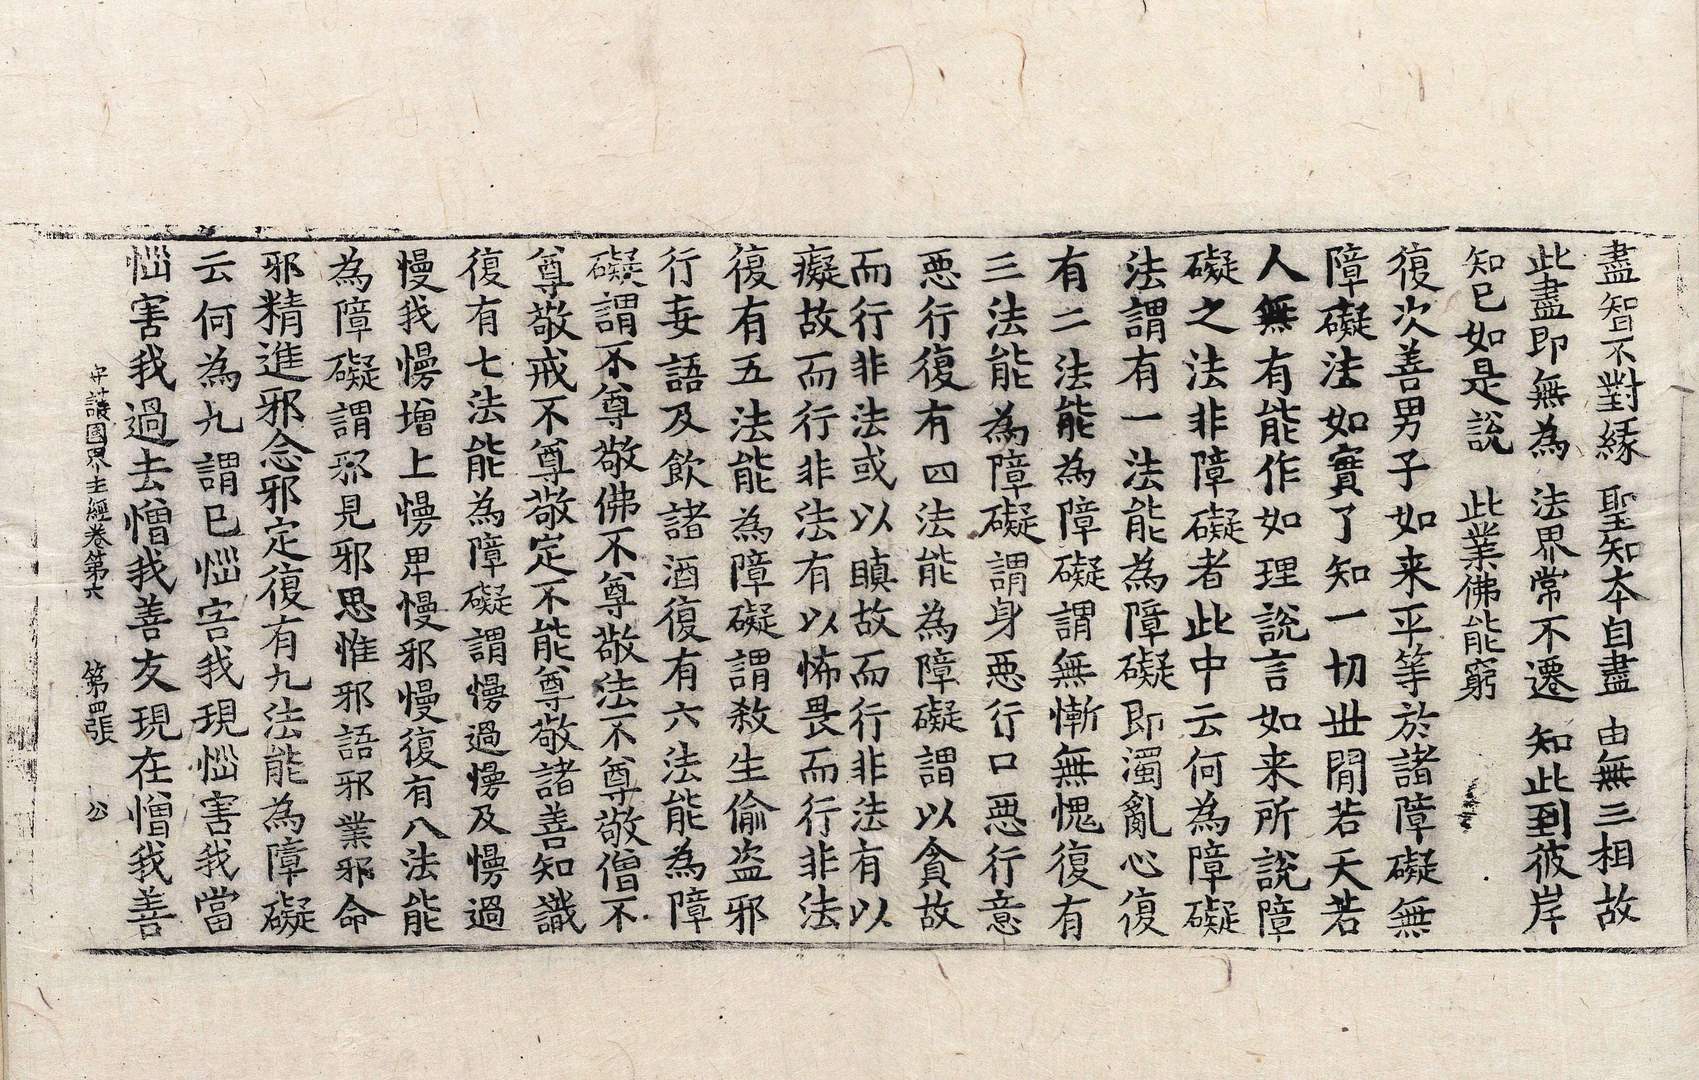 盡智不對緣　聖知本自盡　由無三相故
此盡即無為　法界常不遷　知此到彼岸
知已如是說　此業佛能窮
復次善男子如来平等於諸障礙無
障礙法如實了知一切世閒若天若
人無有能作如理說言如来所說障
礙之法非障礙者此中云何為障礙
法謂有一法能為障礙即濁亂心復
有二法能為障礙謂無慚無愧復有
三法能為障礙謂身惡行口惡行意
惡行復有四法能為障礙謂以貪故
而行非法或以瞋故而行非法有以
癡故而行非法有以怖畏而行非法
復有五法能為障礙謂殺生偷盗邪
行妄語及飲諸酒復有六法能為障
礙謂不尊敬佛不尊敬法不尊敬僧不
尊敬戒不尊敬定不能尊敬諸善知識
復有七法能為障礙謂慢過慢及慢過
慢我慢增上慢卑慢邪慢復有八法能
為障礙謂邪見邪思惟邪語邪業邪命
邪精進邪念邪定復有九法能為障礙
云何為九謂已惱害我現惱害我當
惱害我過去憎我善友現在憎我善
守護國界主經卷第六　第四張　公